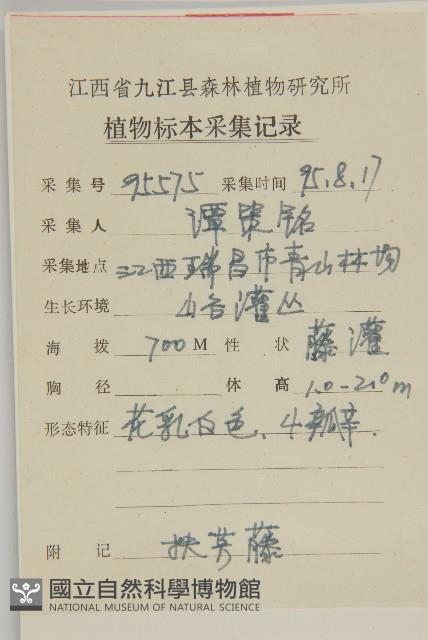 江西省九江县森林植物研究所
植物标本采集记录
采集号 95575 采集时间 95.8.17
采集人 谭策铭
采集地点 江西瑞昌市青山林场
生长环境 山谷灌丛
海拨 700M 性状 藤灌
胸径 体高 1.0-2.0m
形态特征 花乳白色、4瓣
附记 扶芳藤
國立自然科學博物館
NATIONAL MUSEUM OF NATURAL SCIENCE